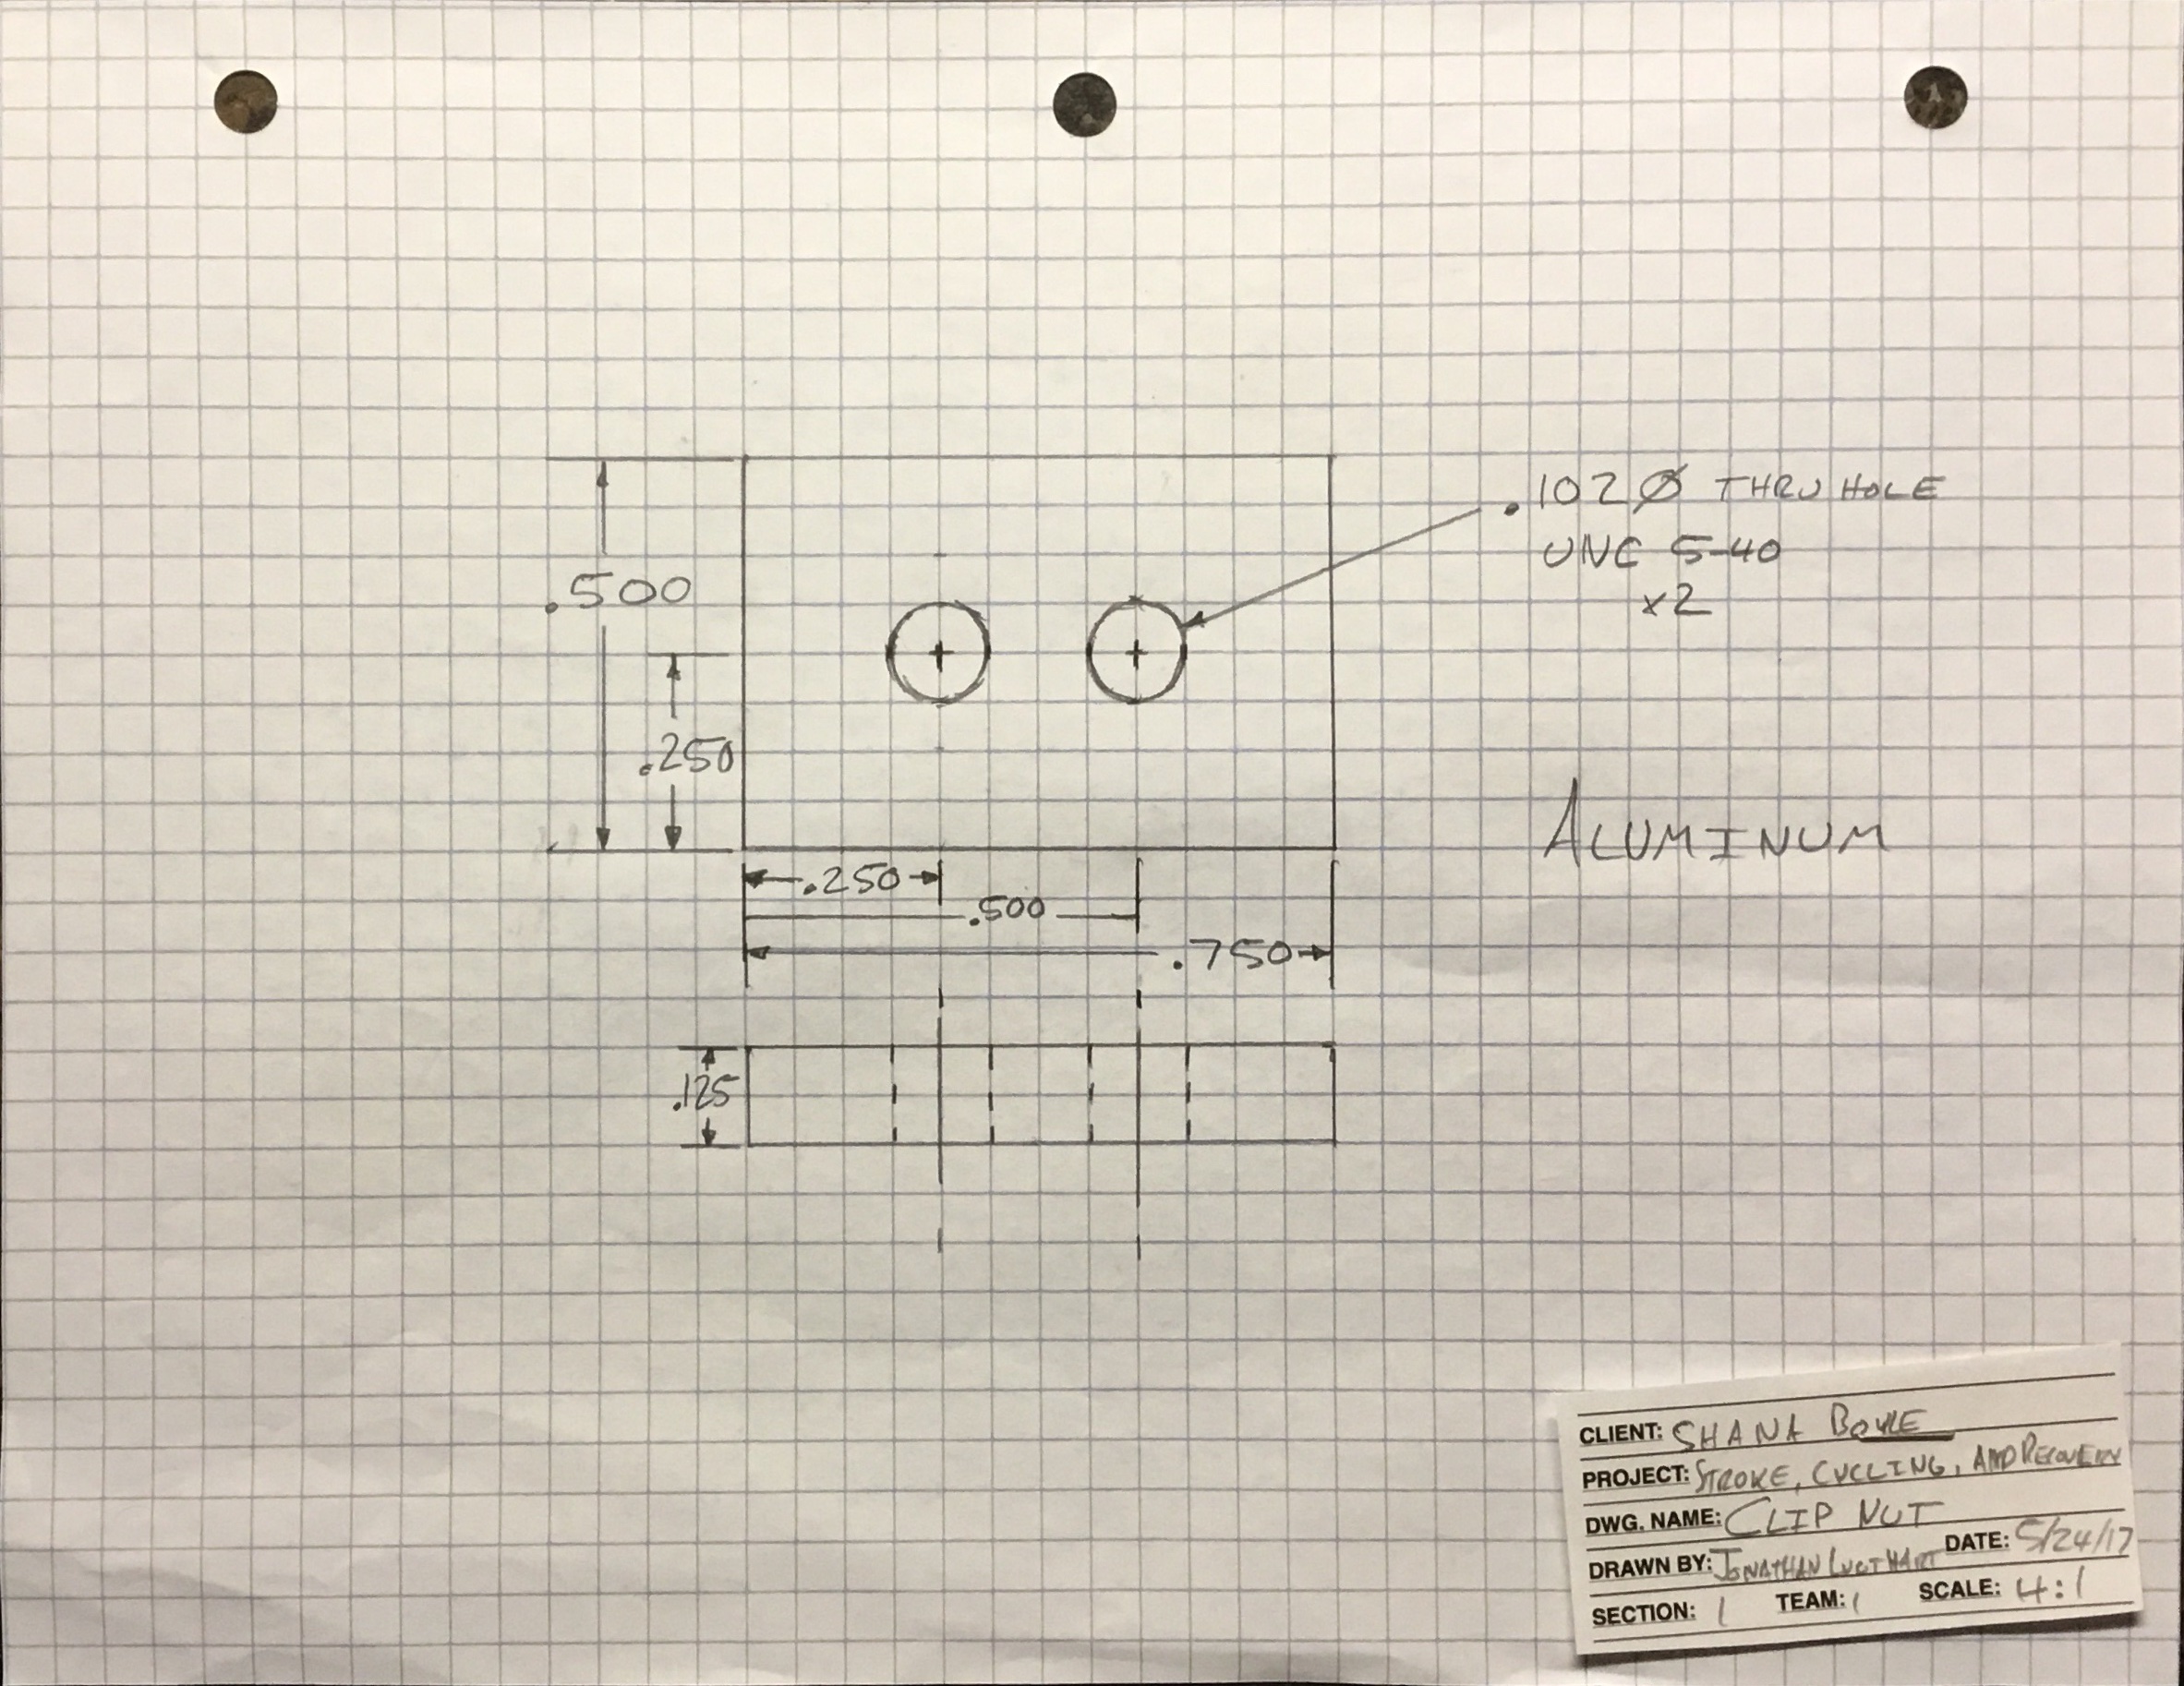 .102 Ø THRU HOLE
UNC 5-40
x2
.500
.250
ALUMINUM
.250
.500
.750
.125
CLIENT: SHANA BOYLE
PROJECT: STROKE, CYCLING, AND RECOVERY
DWG. NAME: CLIP NUT
DRAWN BY: JONATHAN DATE: 5/24/17
SECTION: 1 TEAM: 1 SCALE: 4:1